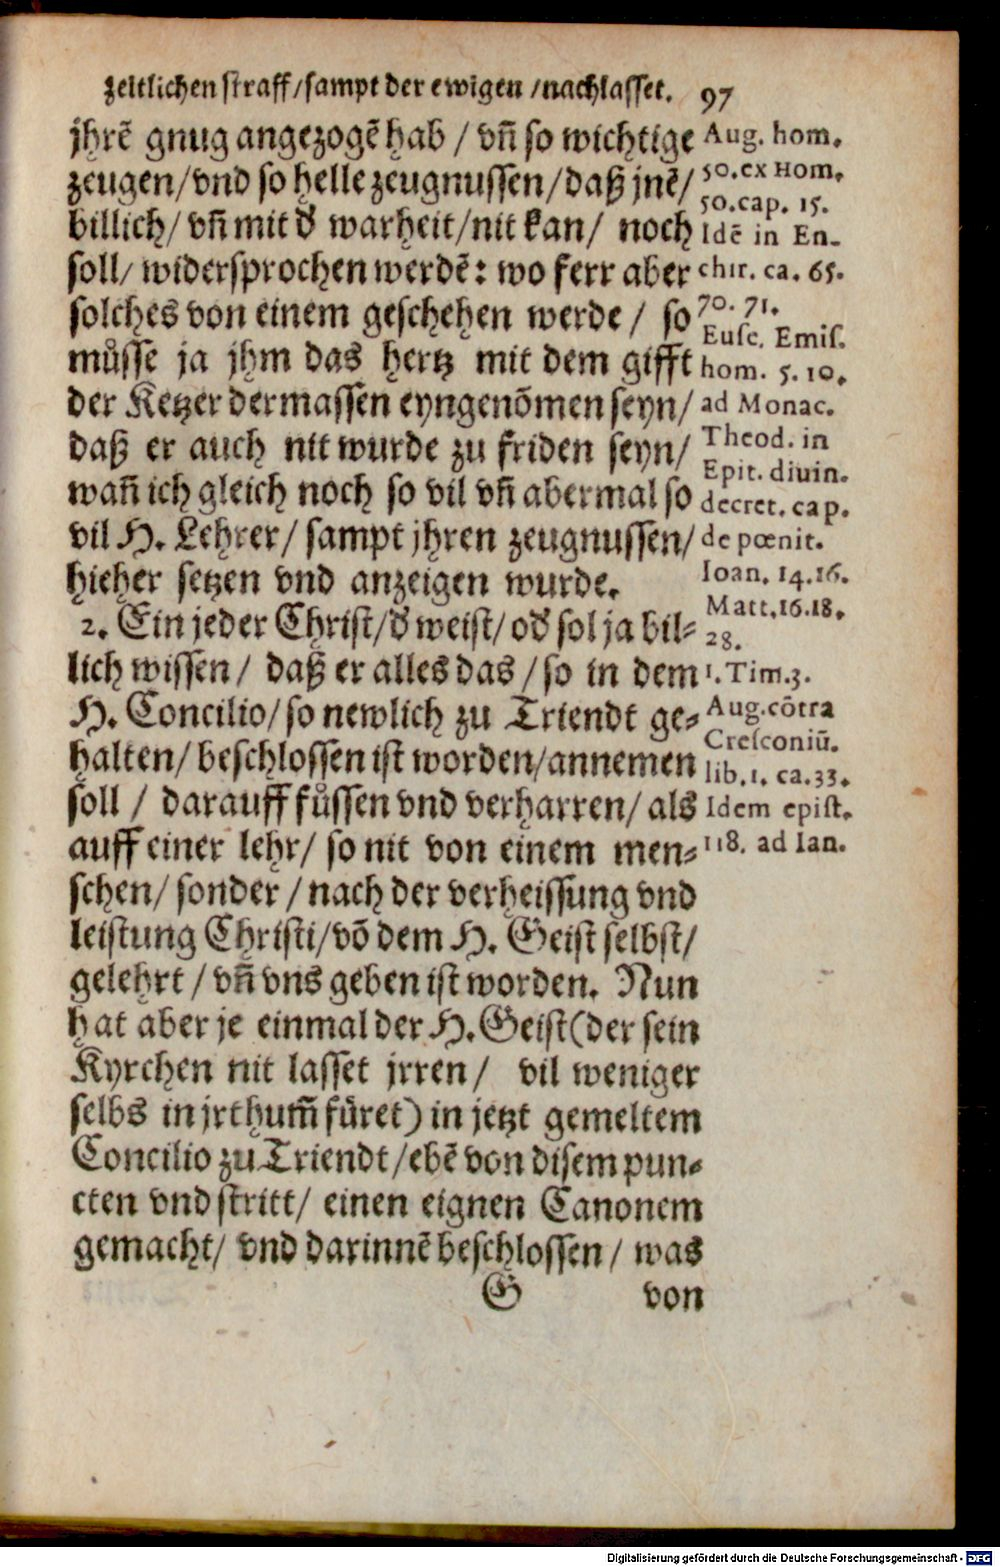 zeitlichen straff/sampt der ewigen/nachlasset. 97
jhrē gnug angezogē hab / vn̄ so wichtige
zeugen/vnd so helle zeugnussen/daß jnē/
billich/ vn̄ mit d̕ warheit/nit kan/ noch
soll/ widersprochen werdē: wo ferr aber
solches von einem geschehen werde / so
muͤsse ja jhm das hertz mit dem gifft
der Ketzer dermassen eyngenōmen seyn/
daß er auch nit wurde zu friden seyn/
wan̄ ich gleich noch so vil vn̄ abermal so
vil H. Lehrer/ sampt jhren zeugnussen/
hieher setzen vnd anzeigen wurde.
2. Ein jeder Christ/d̕ weist/ od̕ sol ja bil⸗
lich wissen/ daß er alles das /so in dem
H. Concilio/so newlich zu Triendt ge⸗
halten/ beschlossen ist worden/annemen
soll / darauff fuͤssen vnd verharren/ als
auff einer lehr/ so nit von einem men⸗
schen/ sonder /nach der verheissung vnd
leistung Christi/vō dem H. Geist selbst/
gelehrt / vn̄ vns geben ist worden. Nun
hat aber je einmal der H. Geist(der sein
Kyrchen nit lasset jrren/ vil weniger
selbs in jrthum̄ fuͤret) in jetzt gemeltem
Concilio zu Triendt/ebē von disem pun⸗
cten vnd stritt/ einen eignen Canonem
gemacht/ vnd darinnē beschlossen/ was
G von
Aug. hom.
50. ex Hom.
50. cap. 15.
Idē in En-
chir. ca. 65.
70. 71.
Euse. Emis.
hom. 5. 10.
ad Monac.
Theod. in
Epit. diuin.
decret. cap.
de pœnit.
Ioan. 14.16.
Matt.16.18.
28.
1. Tim.3.
Aug.cōtra
Cresconiū.
lib.1. ca.33.
Idem epist.
118. ad Ian.
Digitalisierung gefördert durch die Deutsche Forschungsgemeinschaft - DFG